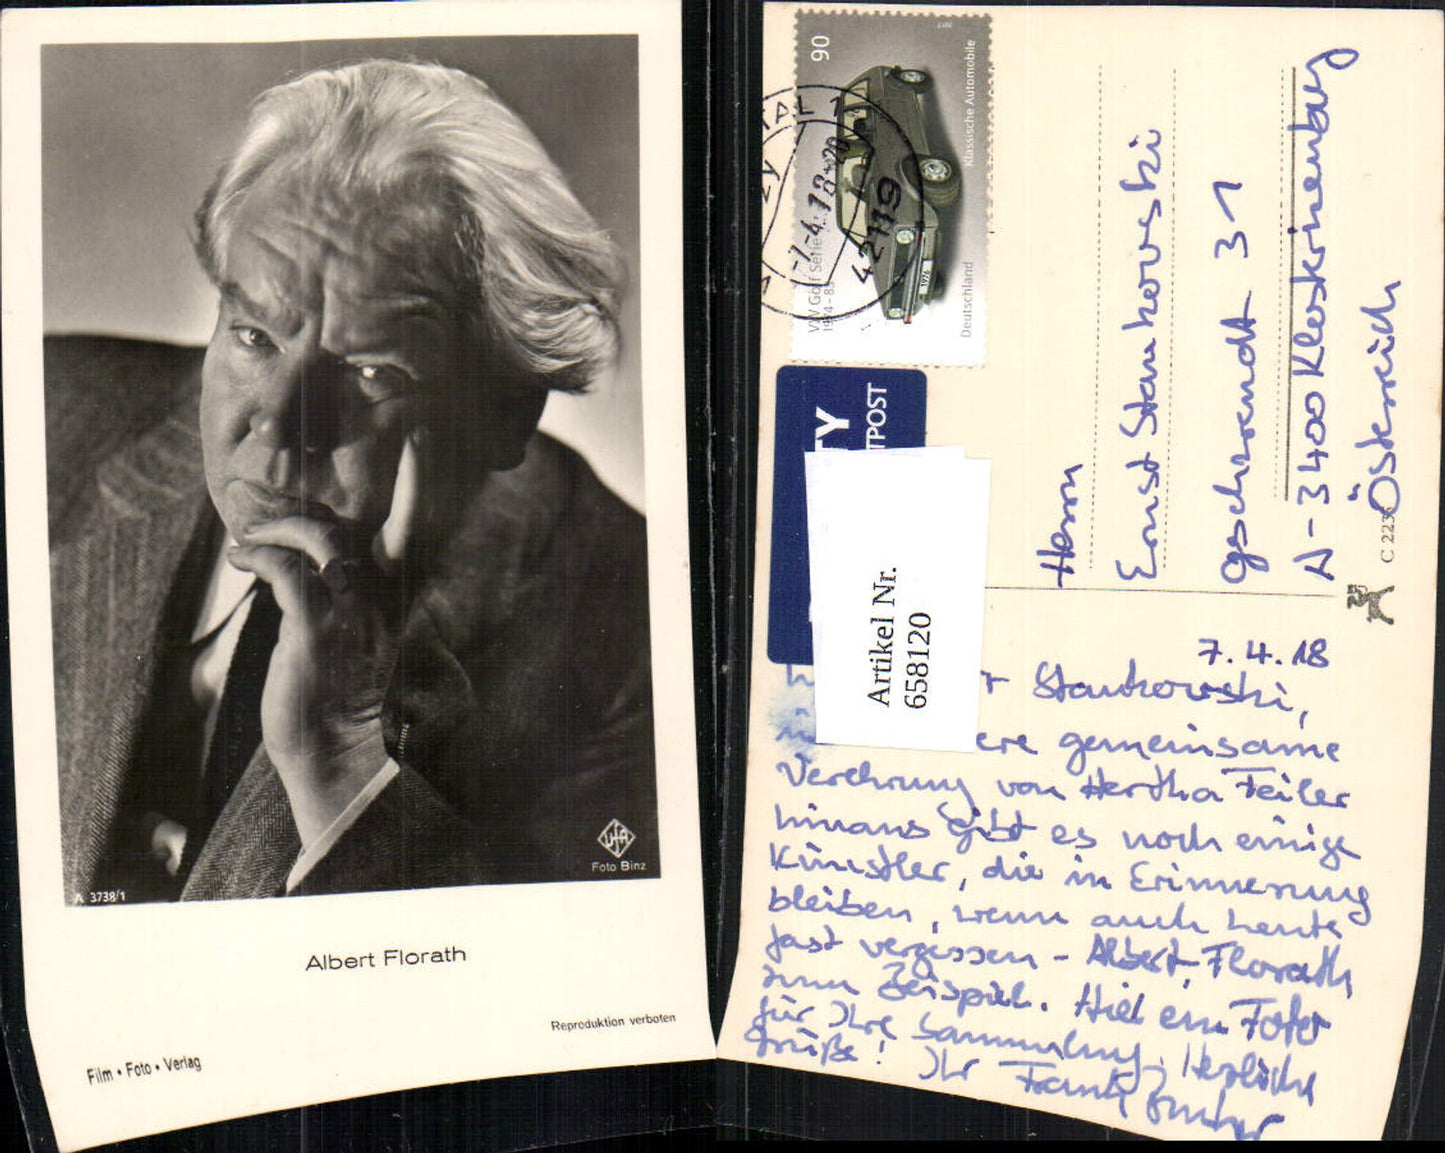 UFA
Foto Binz
A 3738/1
Albert Florath
Reproduktion verboten
Film • Foto • Verlag
90
2017
Klassische Automobile
Deutschland
VW Golf Serie 1
1974-83
1976
-7.-4.18-20
42119
TY
TPOST
Artikel Nr.
658120
Herrn
Ernst Stankovski
Geschwandt 31
A-3400 Klosterneuburg
Österreich
C 223
7.4.18
r Stankowski,
ere gemeinsame
Verehrung von Hertha Feiler
hinaus gibt es noch einige
Künstler, die in Erinnerung
bleiben, wenn auch heute
fast vergessen - Albert Florath
zum Beispiel. Hier ein Foto
für Ihre Sammlung, Herzliche
Grüße! Ihr Frank